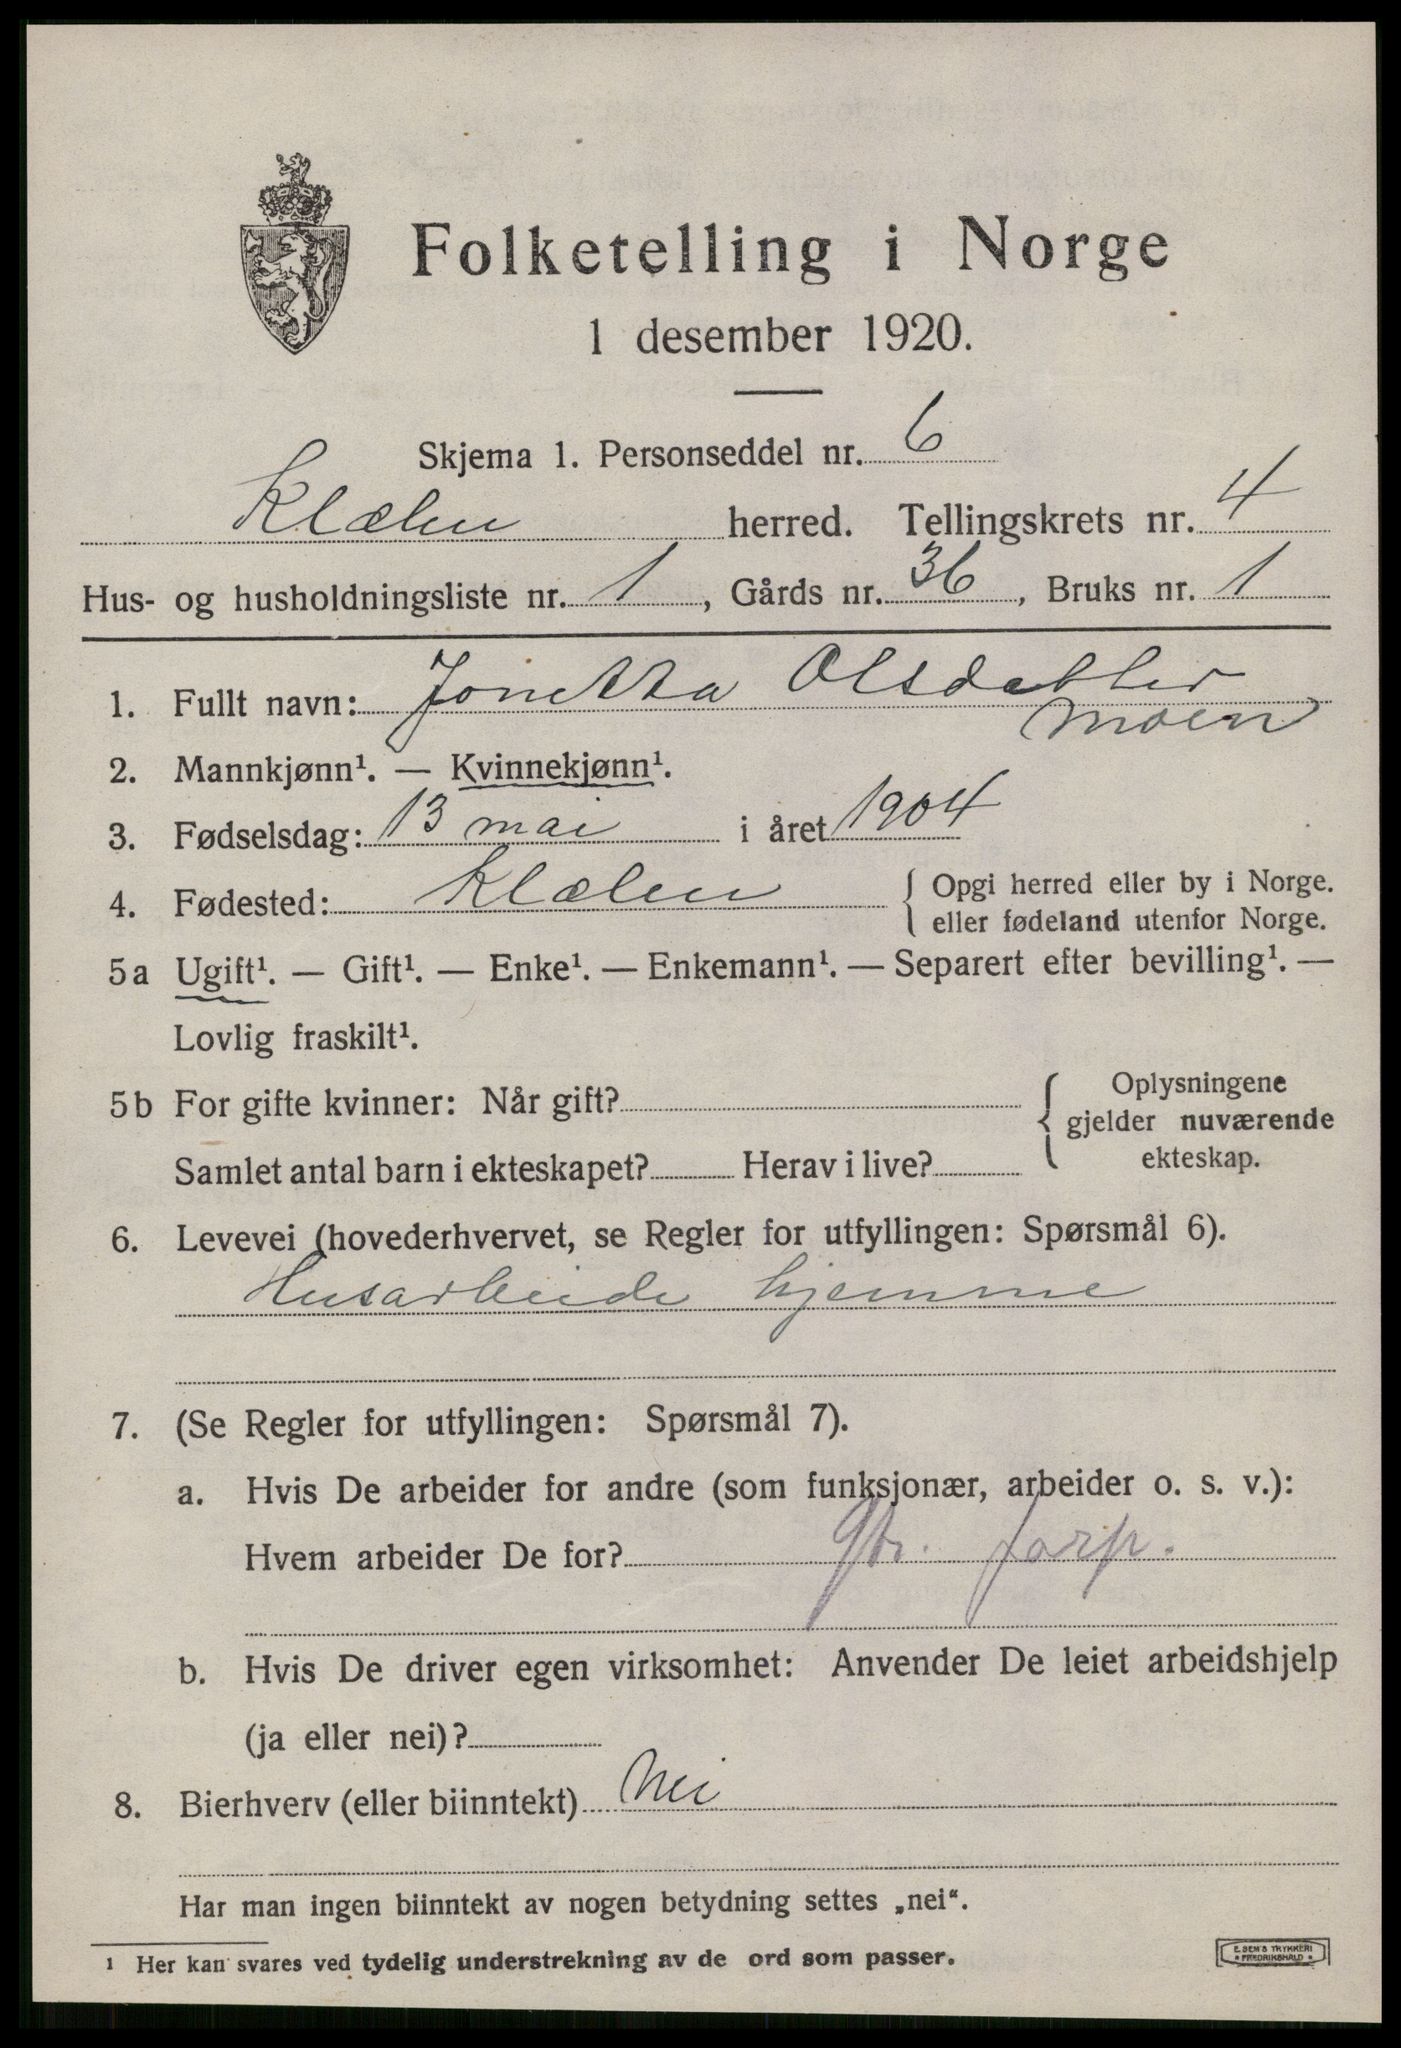 Folketelling i Norge
1 desember 1920.
Skjema 1. Personseddel nr. 6
Klælen herred. Tellingskrets nr. 4
Hus- og husholdningsliste nr. 1, Gårds nr. 36, Bruks nr. 1
1. Fullt navn: Jonetta Olsdatter
Moen
2. Mannkjønn¹. — Kvinnekjønn¹.
3. Fødselsdag: 13 mai i året 1904
4. Fødested: Klælen { Opgi herred eller by i Norge.
eller fødeland utenfor Norge.
5a Ugift¹. — Gift¹. — Enke¹. — Enkemann¹. — Separert efter bevilling¹. —
Lovlig fraskilt¹.
5b For gifte kvinner: Når gift? { Oplysningene
gjelder nuværende
Samlet antal barn i ekteskapet? Herav i live? ekteskap.
6. Levevei (hovederhvervet, se Regler for utfyllingen: Spørsmål 6).
Husarbeide hjemme
7. (Se Regler for utfyllingen: Spørsmål 7).
a. Hvis De arbeider for andre (som funksjonær, arbeider o. s. v.):
Hvem arbeider De for? Gbr. forp.
b. Hvis De driver egen virksomhet: Anvender De leiet arbeidshjelp
(ja eller nei)?
8. Bierhverv (eller biinntekt) Nei
Har man ingen biinntekt av nogen betydning settes „nei“.
¹ Her kan svares ved tydelig understrekning av de ord som passer.
E. SEM'S TRYKKERI
FREDRIKSHALD